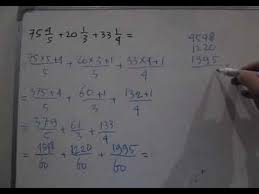 75 4/5 + 20 1/3 + 33 1/4 =
75×5+4/5 + 20×3+1/3 + 33×4+1/4
375+4/5 + 60+1/3 + 132+1/4
379/5 + 61/3 + 133/4
4548/60 + 1220/60 + 1995/60 =
4548
1220
1995